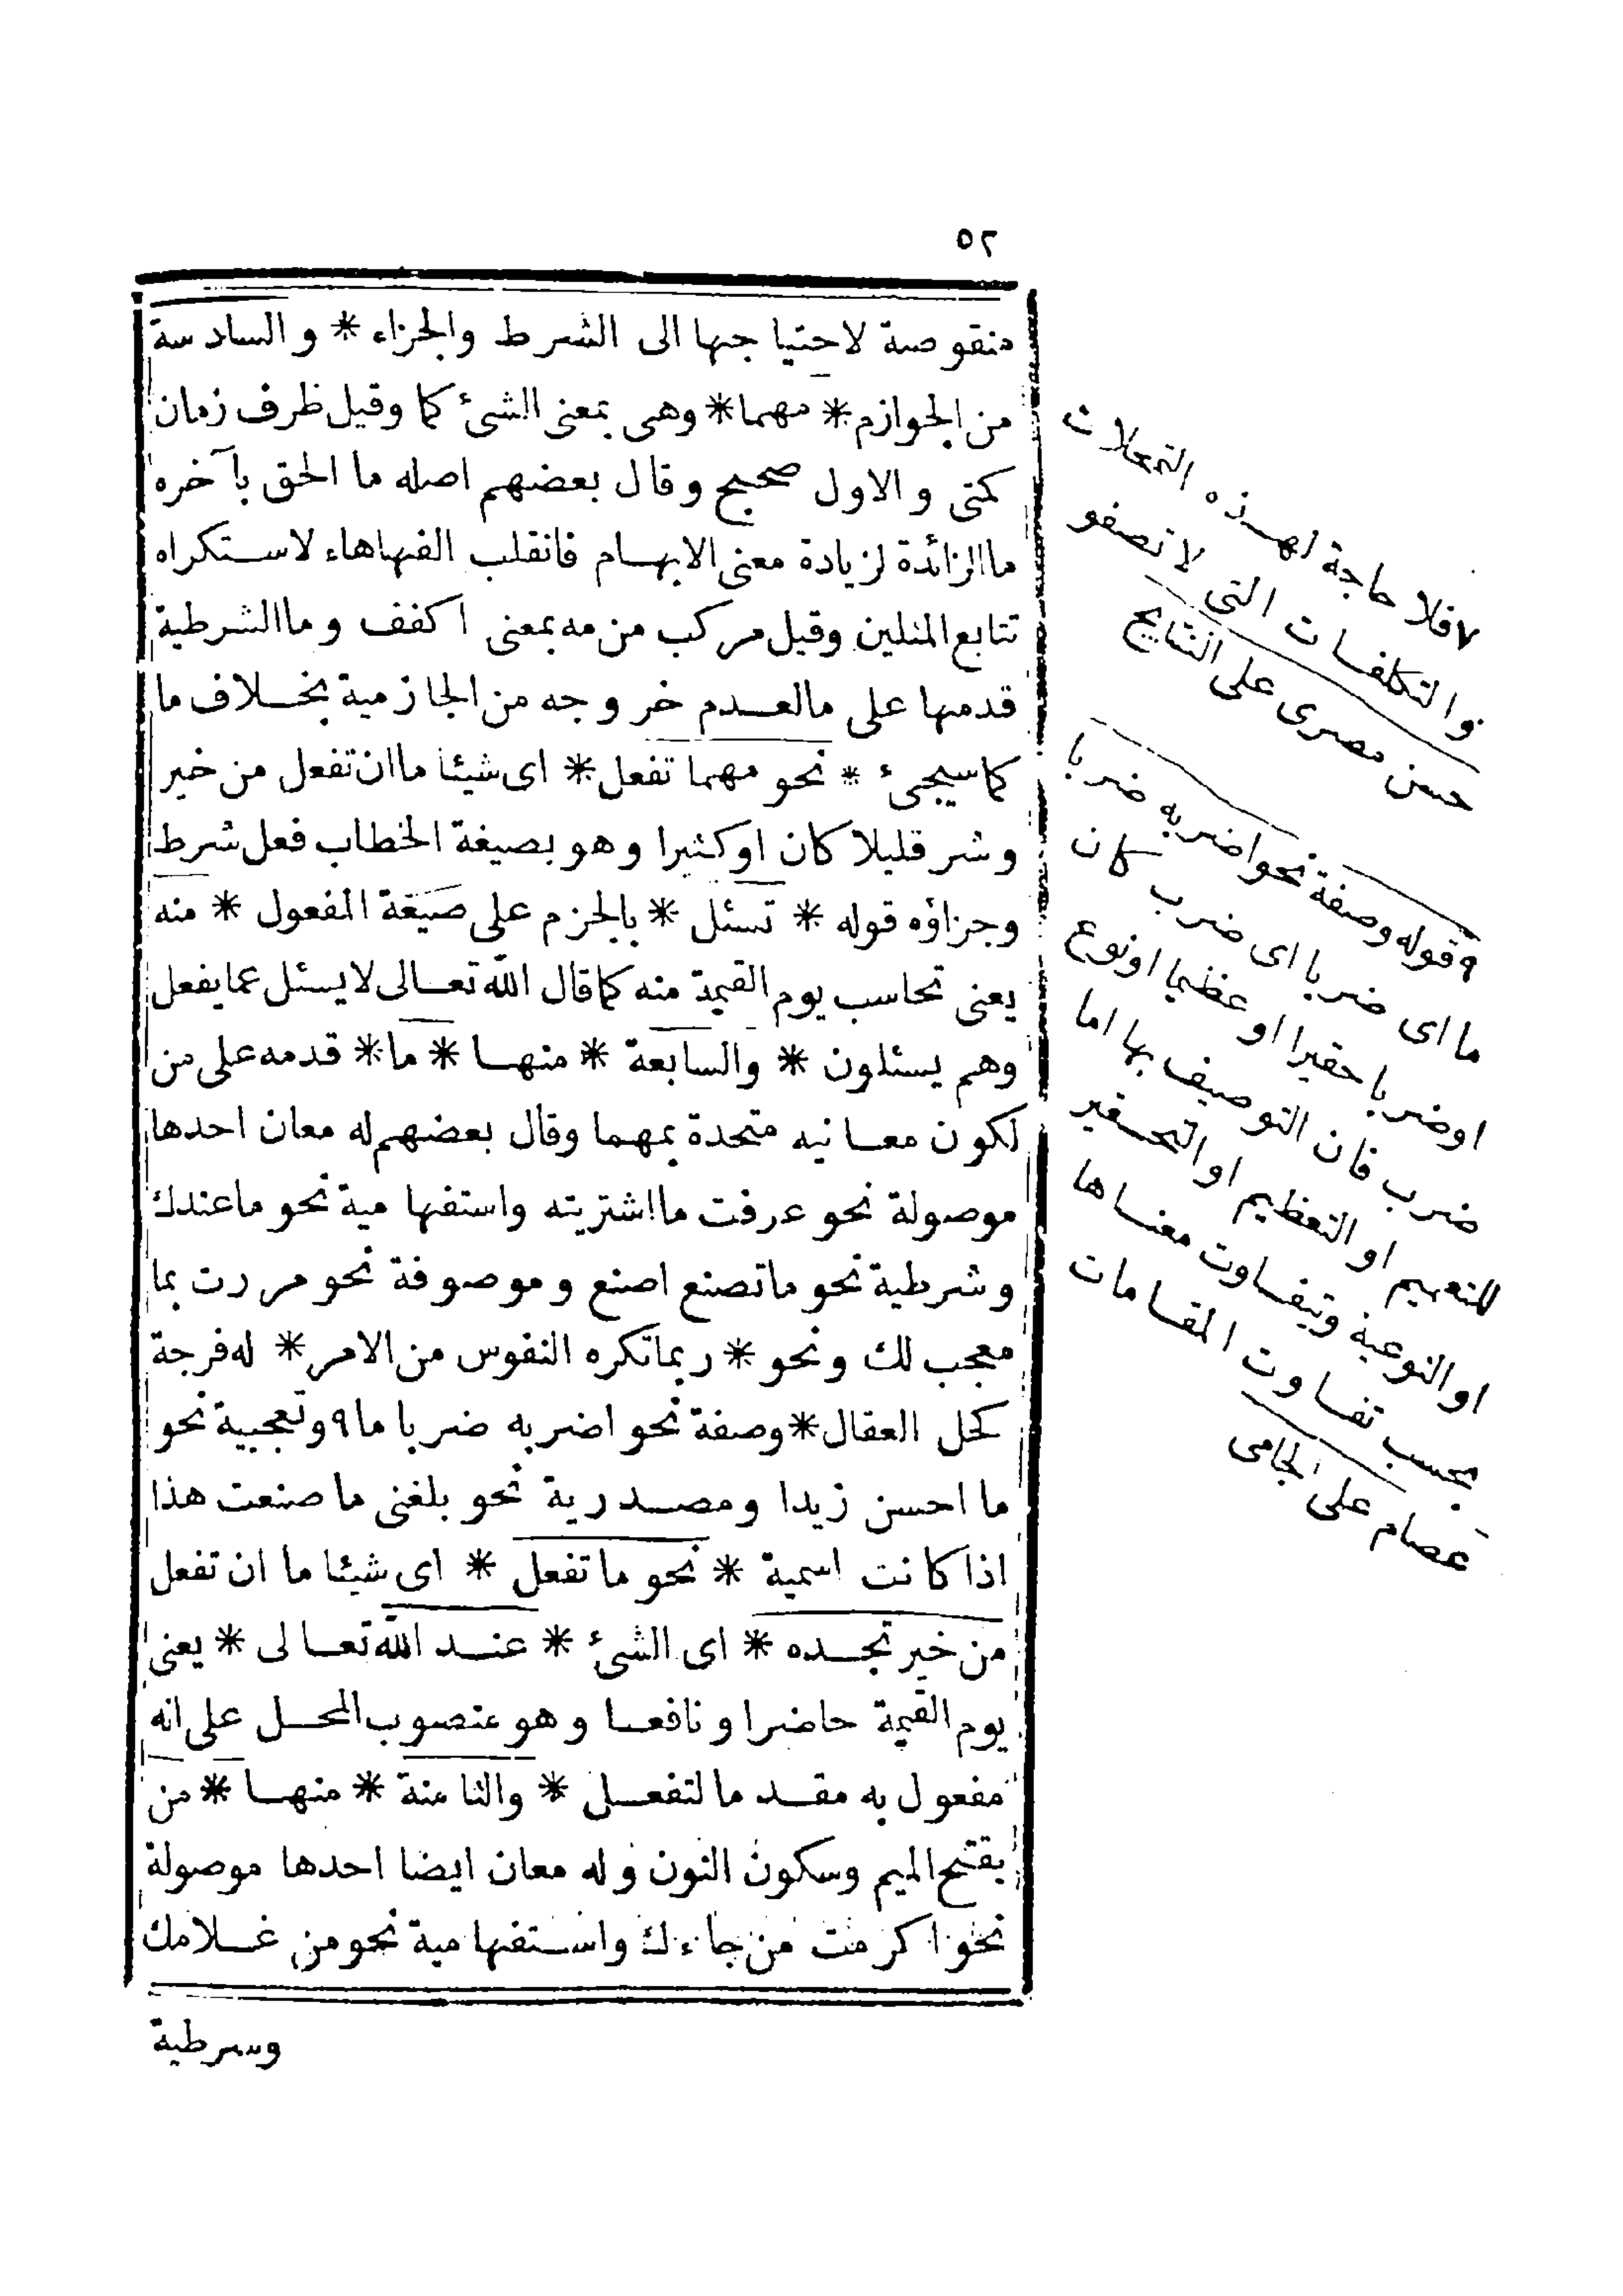 ٥٢
منقوصة لاحتياجها الى الشرط والجزاء * والسادسة
من الجوازم * مهما * وهى بمعنى الشئ كما وقيل ظرف زمان
كمتى والاول صحيح وقال بعضهم اصله ما الحق بآخره
ما الزائدة لزيادة معنى الابهام فانقلب الفهاهاء لاستكراه
تتابع المثلين وقيل مركب من مه بمعنى اكفف وما الشرطية
قدمها على ما لعدم خروجه من الجازمية بخلاف ما
كما سيجئ * نحو مهما تفعل * اى شيئا ما ان تفعل من خير
وشر قليلا كان او كثيرا وهو بصيغة الخطاب فعل شرط
وجزاؤه قوله * تسئل * بالجزم على صيغة المفعول * منه
يعنى تحاسب يوم القيمة منه كما قال الله تعالى لا يسئل عما يفعل
وهم يسئلون * والسابعة * منها * ما * قدمه على من
لكون معانيه متحدة بمهما وقال بعضهم له معان احدها
موصولة نحو عرفت ما اشتريته واستفهامية نحو ما عندك
وشرطية نحو ما تصنع اصنع وموصوفة نحو مررت بما
معجب لك ونحو * ربما تكره النفوس من الامر * له فرجة
كحل العقال * وصفة نحو اضربه ضربا ما ٩ وتعجبية نحو
ما احسن زيدا ومصدرية نحو بلغنى ما صنعت هذا
اذا كانت اسمية * نحو ما تفعل * اى شيئا ما ان تفعل
من خير تجده * اى الشئ * عند الله تعالى * يعنى
يوم القيمة حاضرا ونافعا وهو منصوب المحل على انه
مفعول به مقدما لتفعل * والثامنة * منها * من
بفتح الميم وسكون النون وله معان ايضا احدها موصولة
نحو اكرمت من جاءك واستفهامية نحو من غلامك
وسرطية
٧ فلا حاجة لهذه التمحلات
والتكلفات التى لا تصفو
حسن مصرى على النتايج
٩ قوله وصفة نحو اضربه ضربا
ما اى ضربا اى ضرب كان
او ضربا حقيرا او عظيما او نوع
ضرب فان التوصيف بها اما
للتعميم او التعظيم او التحقير
او النوعية ويتفاوت معناها
بحسب تفاوت المقامات
عصام على الجامى